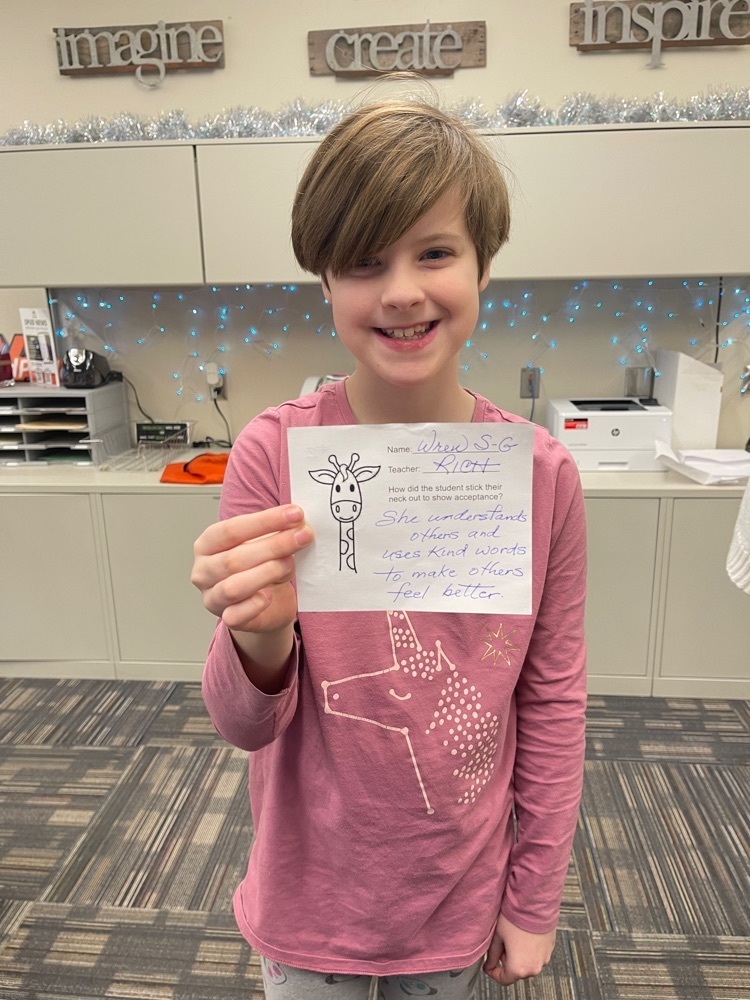 imagine
create
inspire
Name: Wren S-G
Teacher: RICH
How did the student stick their
neck out to show acceptance?
She understands
others and
uses kind words
to make others
feel better.
hp